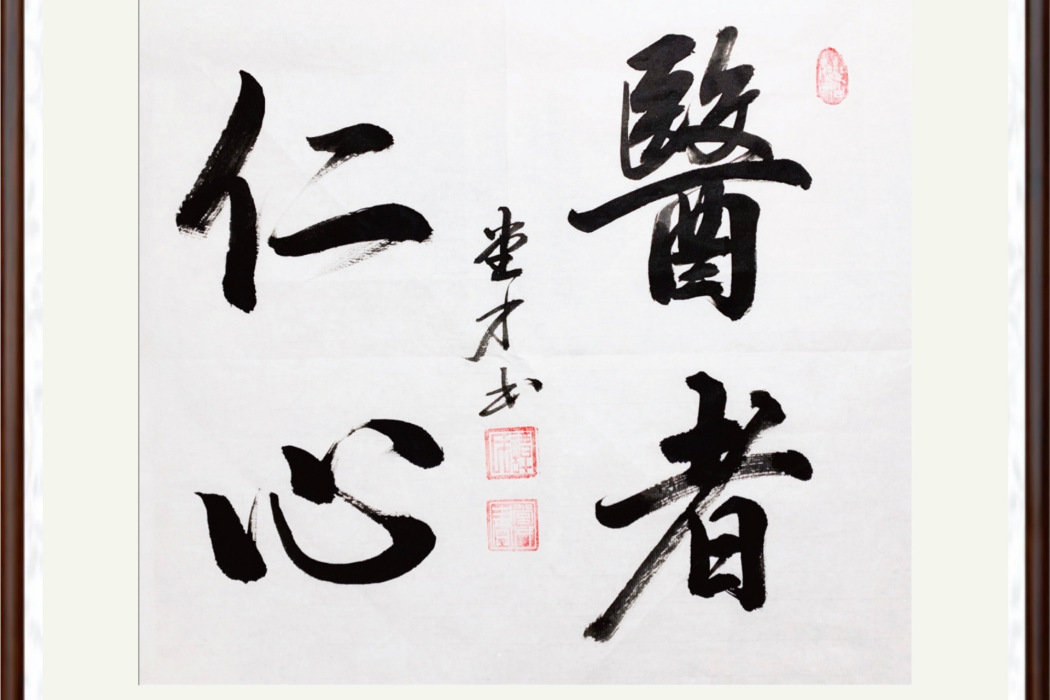 醫者
仁心
堂才书